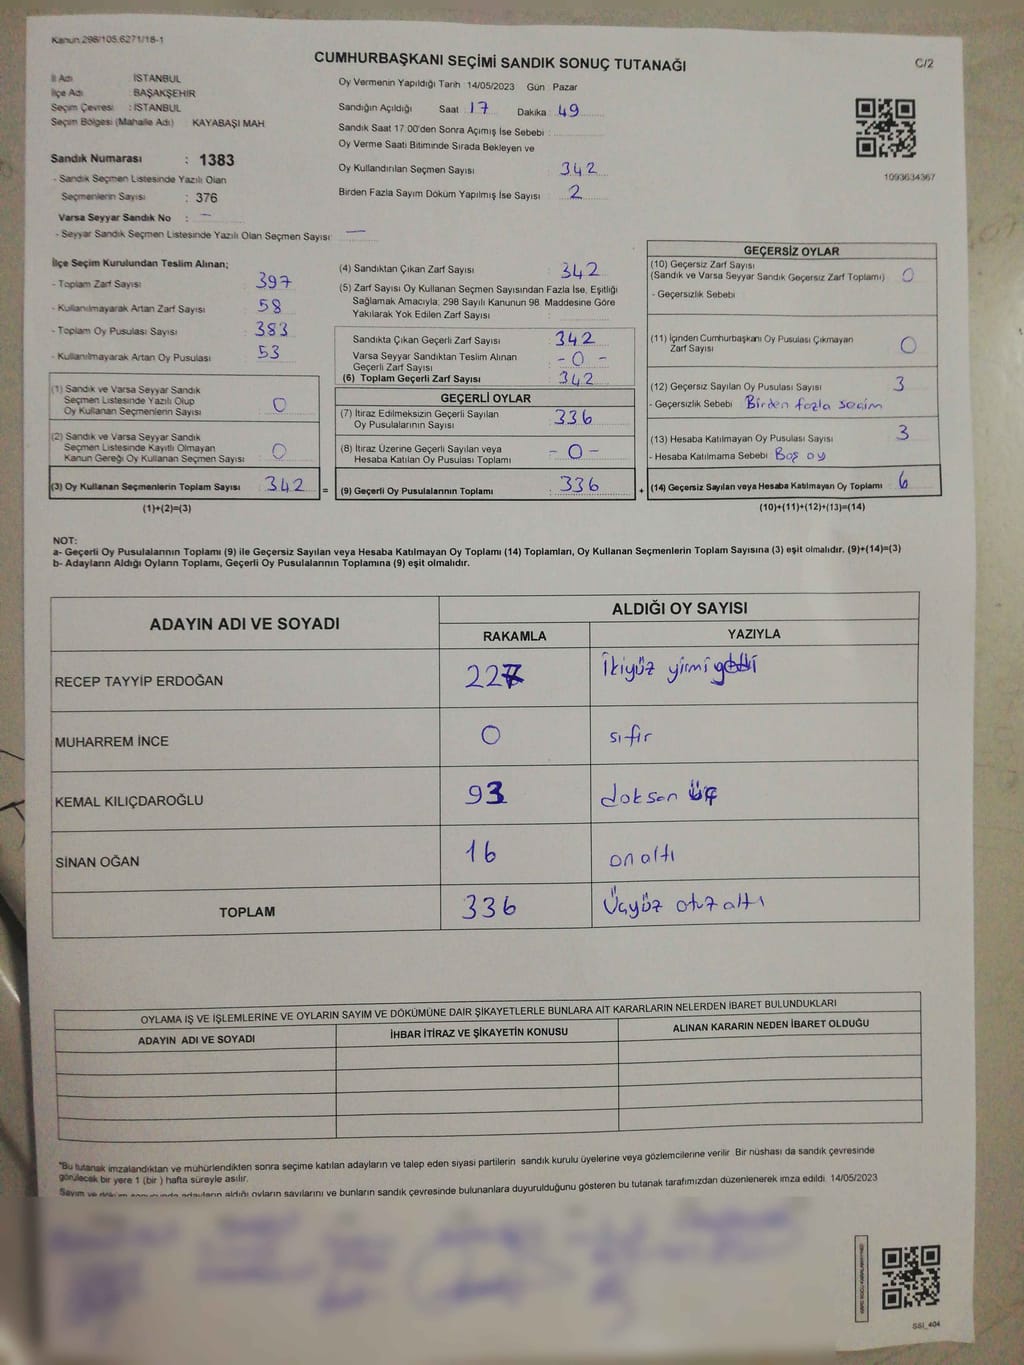 Kanun 298/105.6271/18-1
CUMHURBAŞKANI SEÇİMİ SANDIK SONUÇ TUTANAĞI
C/2
İl Adı : İSTANBUL
İlçe Adı : BAŞAKŞEHİR
Seçim Çevresi : İSTANBUL
Seçim Bölgesi (Mahalle Adı) : KAYABAŞI MAH
Sandık Numarası : 1383
- Sandık Seçmen Listesinde Yazılı Olan
Seçmenlerin Sayısı : 376
Varsa Seyyar Sandık No : —
- Seyyar Sandık Seçmen Listesinde Yazılı Olan Seçmen Sayısı : —
Oy Vermenin Yapıldığı Tarih : 14/05/2023 Gün : Pazar
Sandığın Açıldığı Saat : 17 Dakika : 49
Sandık Saat 17.00'den Sonra Açımış İse Sebebi :
Oy Verme Saati Bitiminde Sırada Bekleyen ve
Oy Kullandırılan Seçmen Sayısı : 342
Birden Fazla Sayım Döküm Yapılmış İse Sayısı : 2
1093634367
İlçe Seçim Kurulundan Teslim Alınan;
- Toplam Zarf Sayısı : 397
- Kullanılmayarak Artan Zarf Sayısı : 58
- Toplam Oy Pusulası Sayısı : 383
- Kullanılmayarak Artan Oy Pusulası : 53
(1) Sandık ve Varsa Seyyar Sandık
Seçmen Listesinde Yazılı Olup
Oy Kullanan Seçmenlerin Sayısı : 0
(2) Sandık ve Varsa Seyyar Sandık
Seçmen Listesinde Kayıtlı Olmayan
Kanun Gereği Oy Kullanan Seçmen Sayısı : 0
(3) Oy Kullanan Seçmenlerin Toplam Sayısı : 342
(1)+(2)=(3)
(4) Sandıktan Çıkan Zarf Sayısı : 342
(5) Zarf Sayısı Oy Kullanan Seçmen Sayısından Fazla İse, Eşitliği
Sağlamak Amacıyla; 298 Sayılı Kanunun 98. Maddesine Göre
Yakılarak Yok Edilen Zarf Sayısı :
Sandıkta Çıkan Geçerli Zarf Sayısı : 342
Varsa Seyyar Sandıktan Teslim Alınan
Geçerli Zarf Sayısı : - 0 -
(6) Toplam Geçerli Zarf Sayısı : 342
GEÇERLİ OYLAR
(7) İtiraz Edilmeksizin Geçerli Sayılan
Oy Pusulalarının Sayısı : 336
(8) İtiraz Üzerine Geçerli Sayılan veya
Hesaba Katılan Oy Pusulası Toplamı : - 0 -
= (9) Geçerli Oy Pusulalarının Toplamı : 336
GEÇERSİZ OYLAR
(10) Geçersiz Zarf Sayısı
(Sandık ve Varsa Seyyar Sandık Geçersiz Zarf Toplamı) : 0
- Geçersizlik Sebebi
(11) İçinden Cumhurbaşkanı Oy Pusulası Çıkmayan
Zarf Sayısı : 0
(12) Geçersiz Sayılan Oy Pusulası Sayısı : 3
- Geçersizlik Sebebi : Birden fazla seçim
(13) Hesaba Katılmayan Oy Pusulası Sayısı : 3
- Hesaba Katılmama Sebebi : Boş oy
+ (14) Geçersiz Sayılan veya Hesaba Katılmayan Oy Toplamı : 6
(10)+(11)+(12)+(13)=(14)
NOT:
a- Geçerli Oy Pusulalarının Toplamı (9) ile Geçersiz Sayılan veya Hesaba Katılmayan Oy Toplamı (14) Toplamları, Oy Kullanan Seçmenlerin Toplam Sayısına (3) eşit olmalıdır. (9)+(14)=(3)
b- Adayların Aldığı Oyların Toplamı, Geçerli Oy Pusulalarının Toplamına (9) eşit olmalıdır.
ADAYIN ADI VE SOYADI
ALDIĞI OY SAYISI
RAKAMLA YAZIYLA
RECEP TAYYİP ERDOĞAN 227 İkiyüz yirmi
MUHARREM İNCE 0 sıfır
KEMAL KILIÇDAROĞLU 93 doksan üç
SİNAN OĞAN 16 on altı
TOPLAM 336 Üçyüz otuz altı
OYLAMA İŞ VE İŞLEMLERİNE VE OYLARIN SAYIM VE DÖKÜMÜNE DAİR ŞİKAYETLERLE BUNLARA AİT KARARLARIN NELERDEN İBARET BULUNDUKLARI
ADAYIN ADI VE SOYADI
İHBAR İTİRAZ VE ŞİKAYETİN KONUSU
ALINAN KARARIN NEDEN İBARET OLDUĞU
"Bu tutanak imzalandıktan ve mühürlendikten sonra seçime katılan adayların ve talep eden siyasi partilerin sandık kurulu üyelerine veya gözlemcilerine verilir. Bir nüshası da sandık çevresinde
görülecek bir yere 1 (bir ) hafta süreyle asılır.
Sayım ve döküm sonucunda adayların aldığı oyların sayılarını ve bunların sandık çevresinde bulunanlara duyurulduğunu gösteren bu tutanak tarafımızdan düzenlenerek imza edildi. 14/05/2023
SSI_404